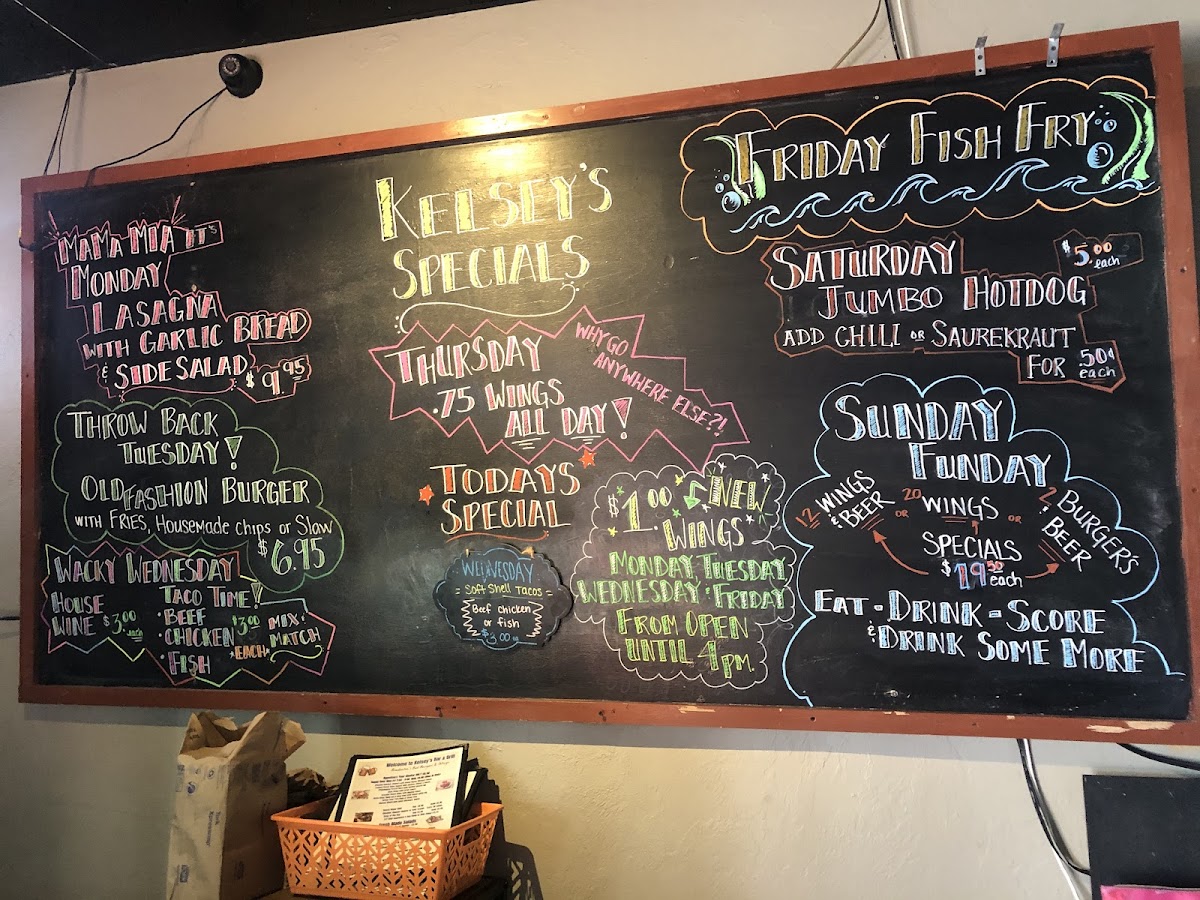 KELSEY'S
SPECIALS
MAMA MIA IT'S
MONDAY
LASAGNA
WITH GARLIC BREAD
& SIDE SALAD $9.95
THROW BACK
TUESDAY!
OLD FASHION BURGER
WITH FRIES, HOUSEMADE CHIPS OR SLAW
$6.95
WACKY WEDNESDAY
HOUSE
WINE $3.00 each
TACO TIME!
• BEEF
• CHICKEN
• FISH
$3.00
*EACH*
MIX &
MATCH
THURSDAY
.75 WINGS
ALL DAY!
WHY GO
ANYWHERE ELSE?!
TODAYS
SPECIAL
WEDNESDAY
= Soft Shell Tacos =
Beef chicken
or fish
$3.00 ea
$1.00 NEW
WINGS
MONDAY TUESDAY
WEDNESDAY & FRIDAY
FROM OPEN
UNTIL 4PM.
FRIDAY FISH FRY
SATURDAY $5.00 each
JUMBO HOTDOG
ADD CHILI OR SAUREKRAUT
FOR 50¢ each
SUNDAY
FUNDAY
12 WINGS
& BEER
OR 20 WINGS OR
2 BURGER'S
& BEER
SPECIALS
$19.50 each
EAT - DRINK - SCORE
& DRINK SOME MORE
Welcome to Kelsey's Bar & Grill